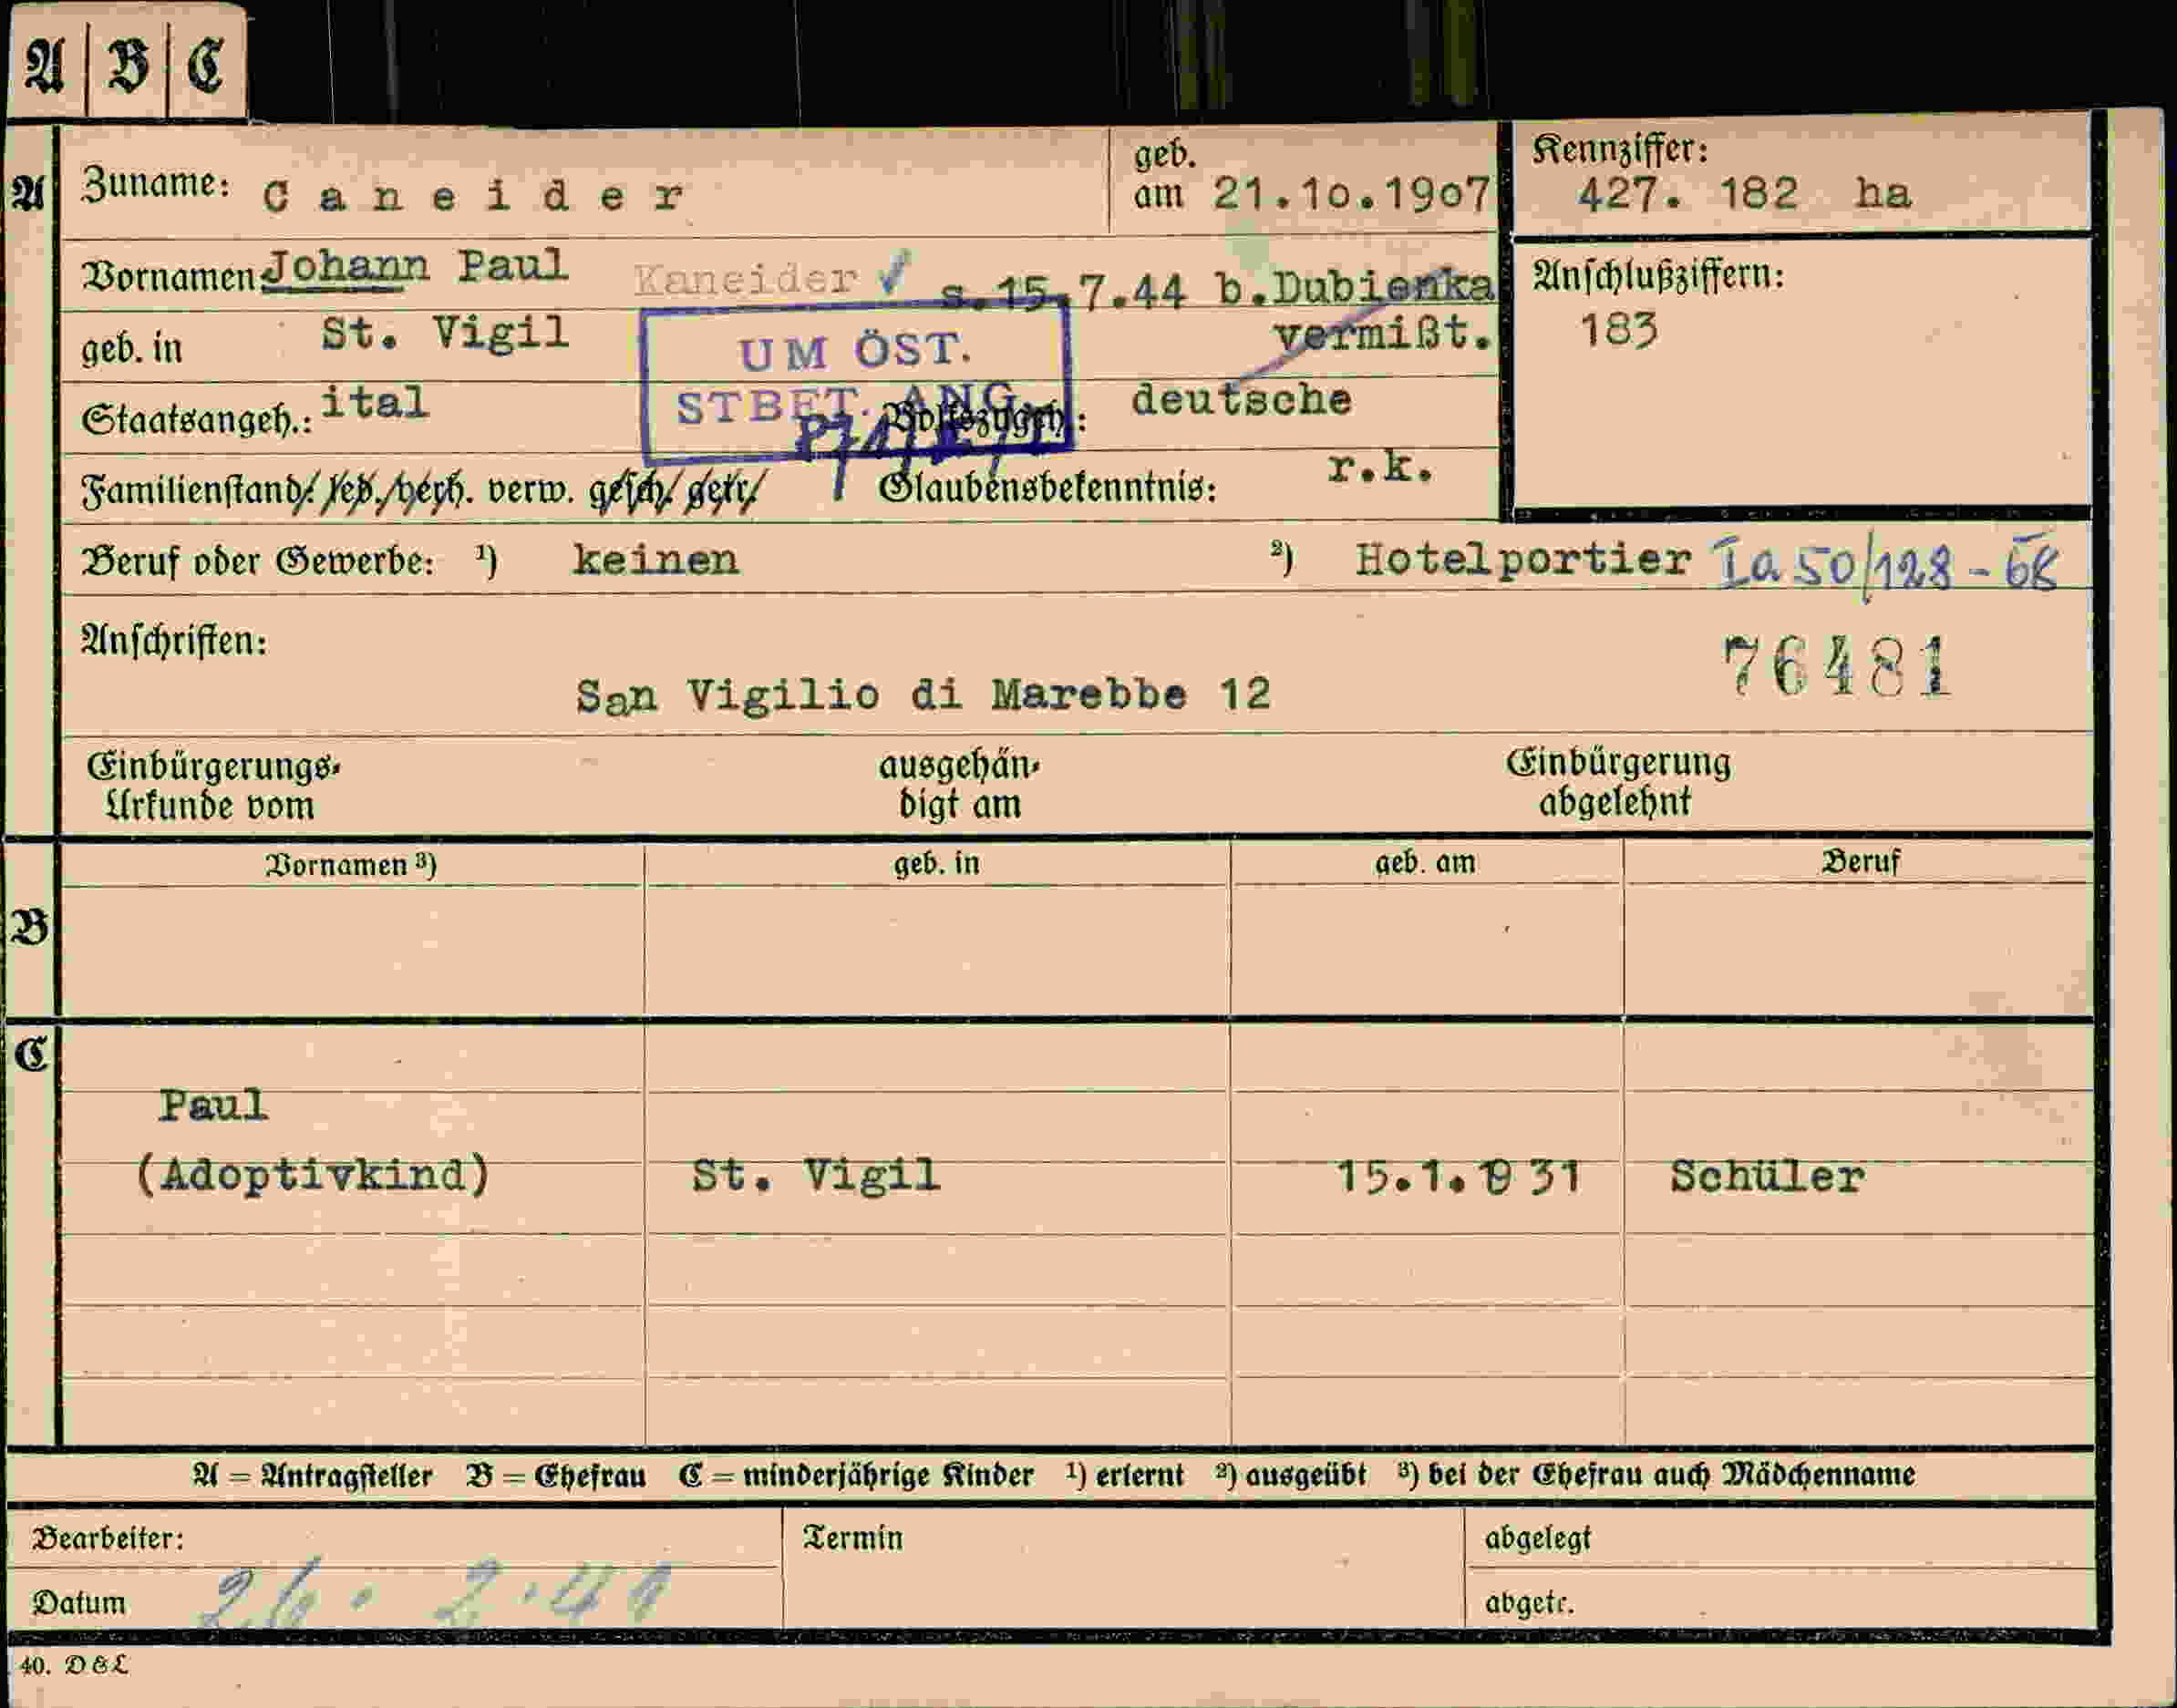 A B C
A Zuname: Caneider geb. am 21.10.1907 Kennziffer: 427. 182 ha
Vornamen Johann Paul Kaneider s.15.7.44 b.Dubienka Anschlußziffern:
geb. in St. Vigil vermißt. 183
UM ÖST.
STBET. ANG.
Staatsangeh.: ital Volkszugeh.: deutsche
Familienstand: led. verh. verw. gesch. getr. Glaubensbekenntnis: r.k.
Beruf oder Gewerbe: ¹) keinen ²) Hotelportier Ia 50/128-
Anschriften:
76481
San Vigilio di Marebbe 12
Einbürgerungs- ausgehän- Einbürgerung
Urkunde vom digt am abgelehnt
Vornamen ³) geb. in geb. am Beruf
B
C
Paul
(Adoptivkind) St. Vigil 15.1.1931 Schüler
A = Antragsteller B = Ehefrau C = minderjährige Kinder ¹) erlernt ²) ausgeübt ³) bei der Ehefrau auch Mädchenname
Bearbeiter: Termin abgelegt
Datum 26. 2. abgetr.
40. D&L